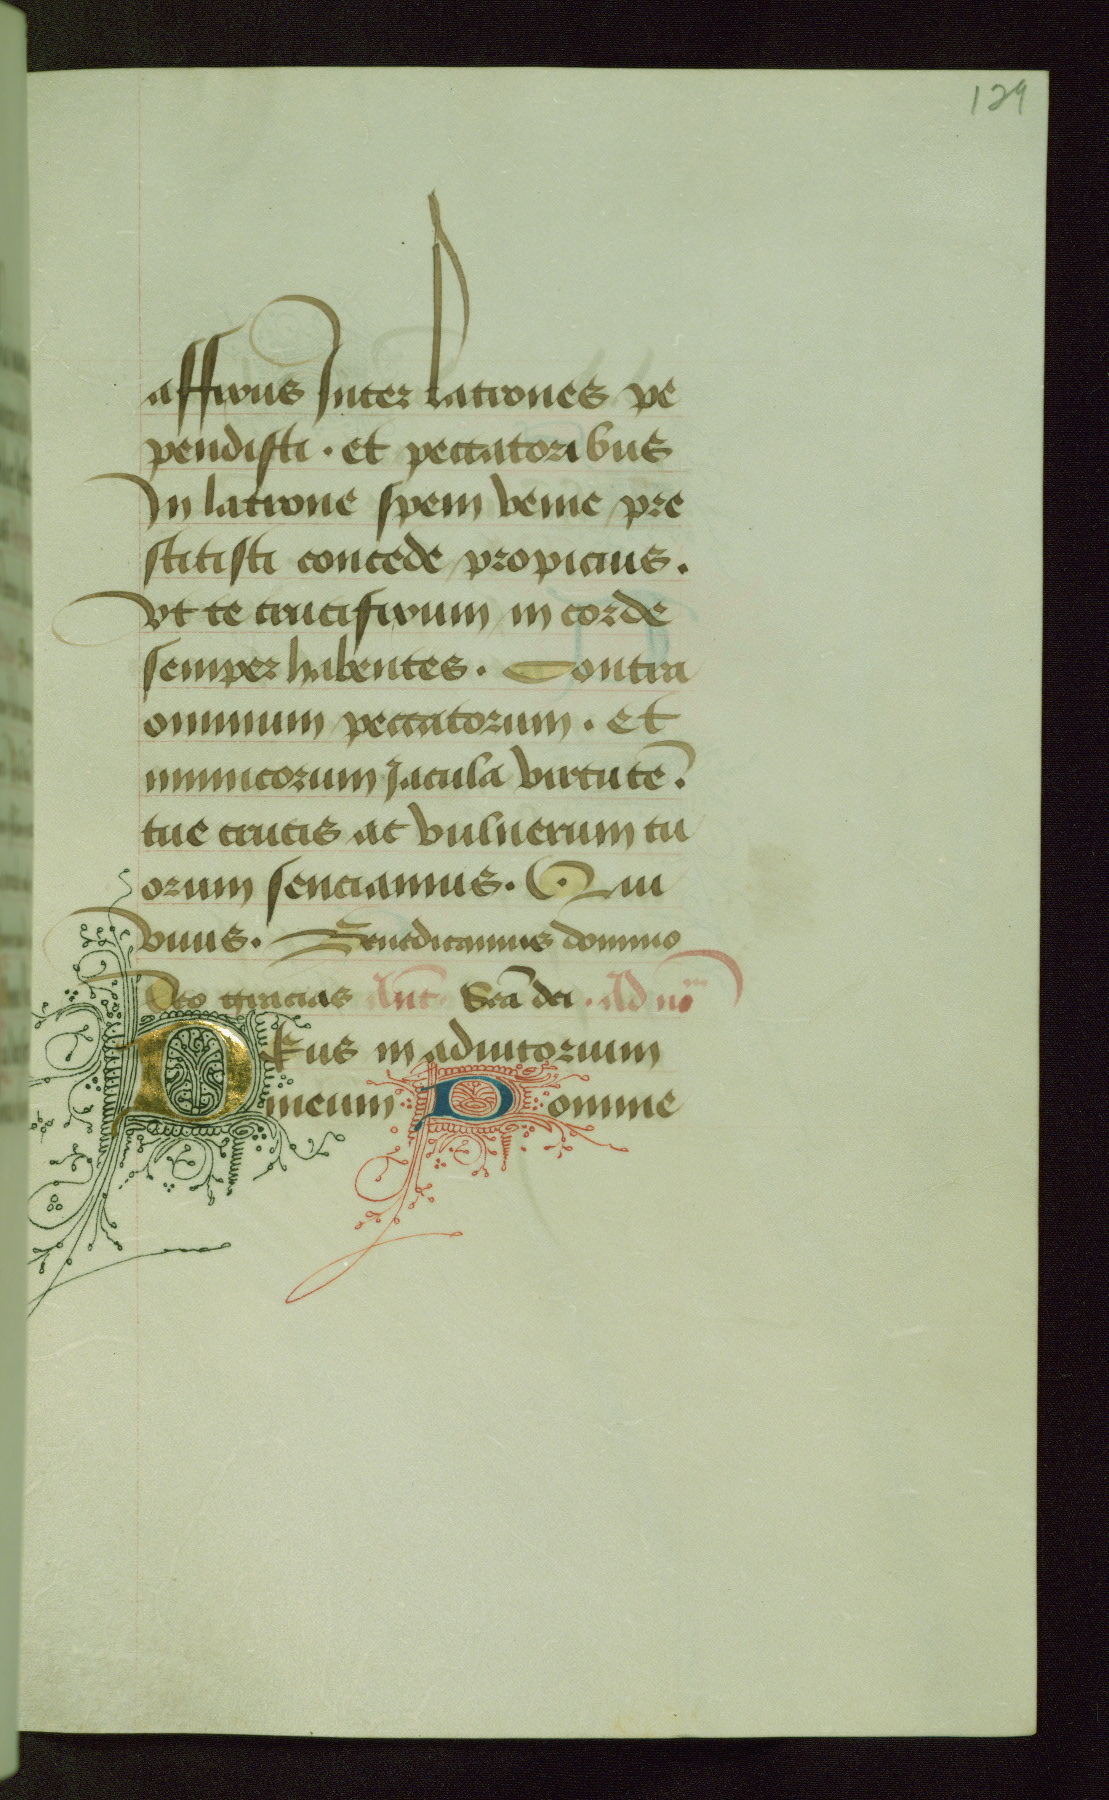 129
affixus Inter latrones pe
pendisti . et peccatoribus
In latrone spem venie pre
stitisti concede propicius .
vt te crucifixum in corde
semper habentes . Contra
omnium peccatorum . et
inimicorum Jacula virtutē .
tue crucis ac vulnerum tu
orum senciamus . Qui
viuis . Benedicamus domino
Deo gracias Ant̄ Scā dei . Ad nō
DEus in adiutorium
meum Domine